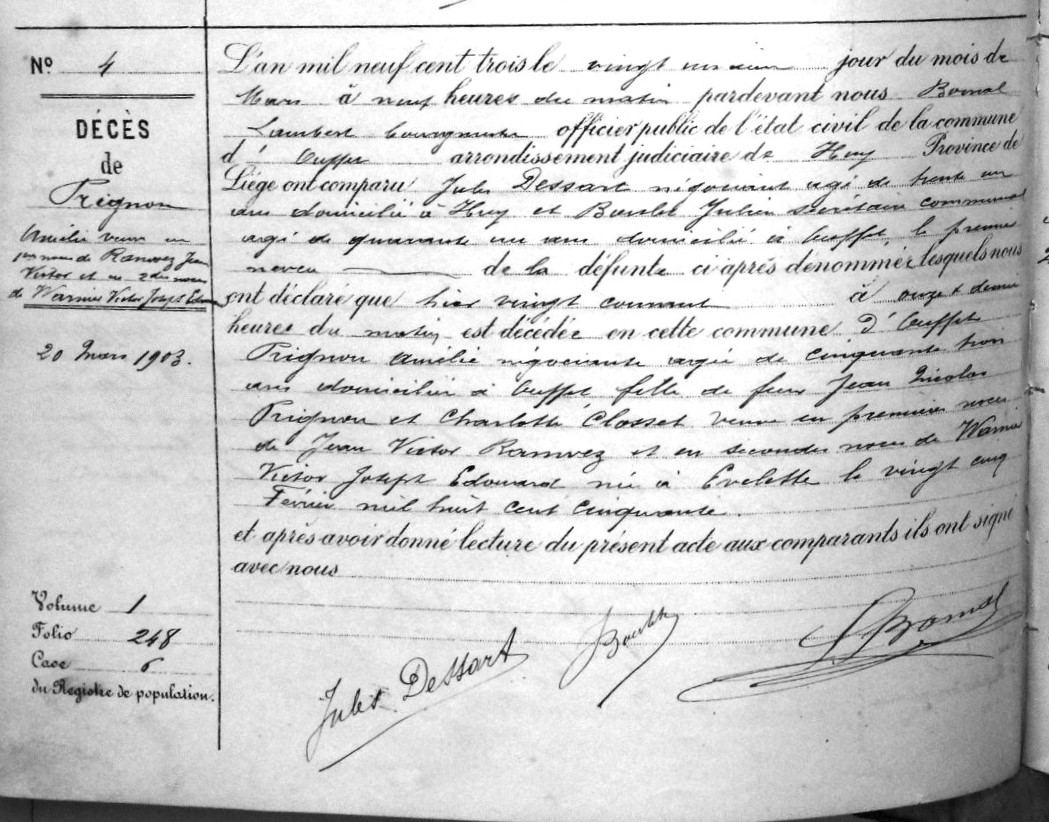 N° 4
DÉCÈS
de
Trignon
Amélie veuve en
1ères noces de Ranwez Jean
Victor et en 2des noces
de Warnier Victor Joseph Edouard
20 Mars 1903.
L'an mil neuf cent trois le vingt unième jour du mois de
Mars à neuf heures du matin pardevant nous Bomal
Lambert bourgmestre officier public de l'état civil de la commune
d' Ouffet arrondissement judiciaire de Huy Province de
Liége ont comparu Jules Dessart négociant agé de trente un
ans domicilié à Huy et Julien secrétaire communal
agé de quarante un ans domicilié à Ouffet, le premier
neveu de la défunte ci après dénommée lesquels nous
ont déclaré que hier vingt courant à onze & demie
heures du matin est décédée en cette commune d'Ouffet
Trignon Amélie négociante agée de cinquante trois
ans domiciliée à Ouffet fille de feus Jean Nicolas
Trignon et Charlotte Closset veuve en premières noces
de Jean Victor Ranwez et en secondes noces de Warnier
Victor Joseph Edouard née à Evelette le vingt cinq
Février mil huit cent cinquante.
et après avoir donné lecture du présent acte aux comparants ils ont signé
avec nous
Volume 1
Folio 248
Case 6
du Registre de population.
Jules Dessart
LBomal